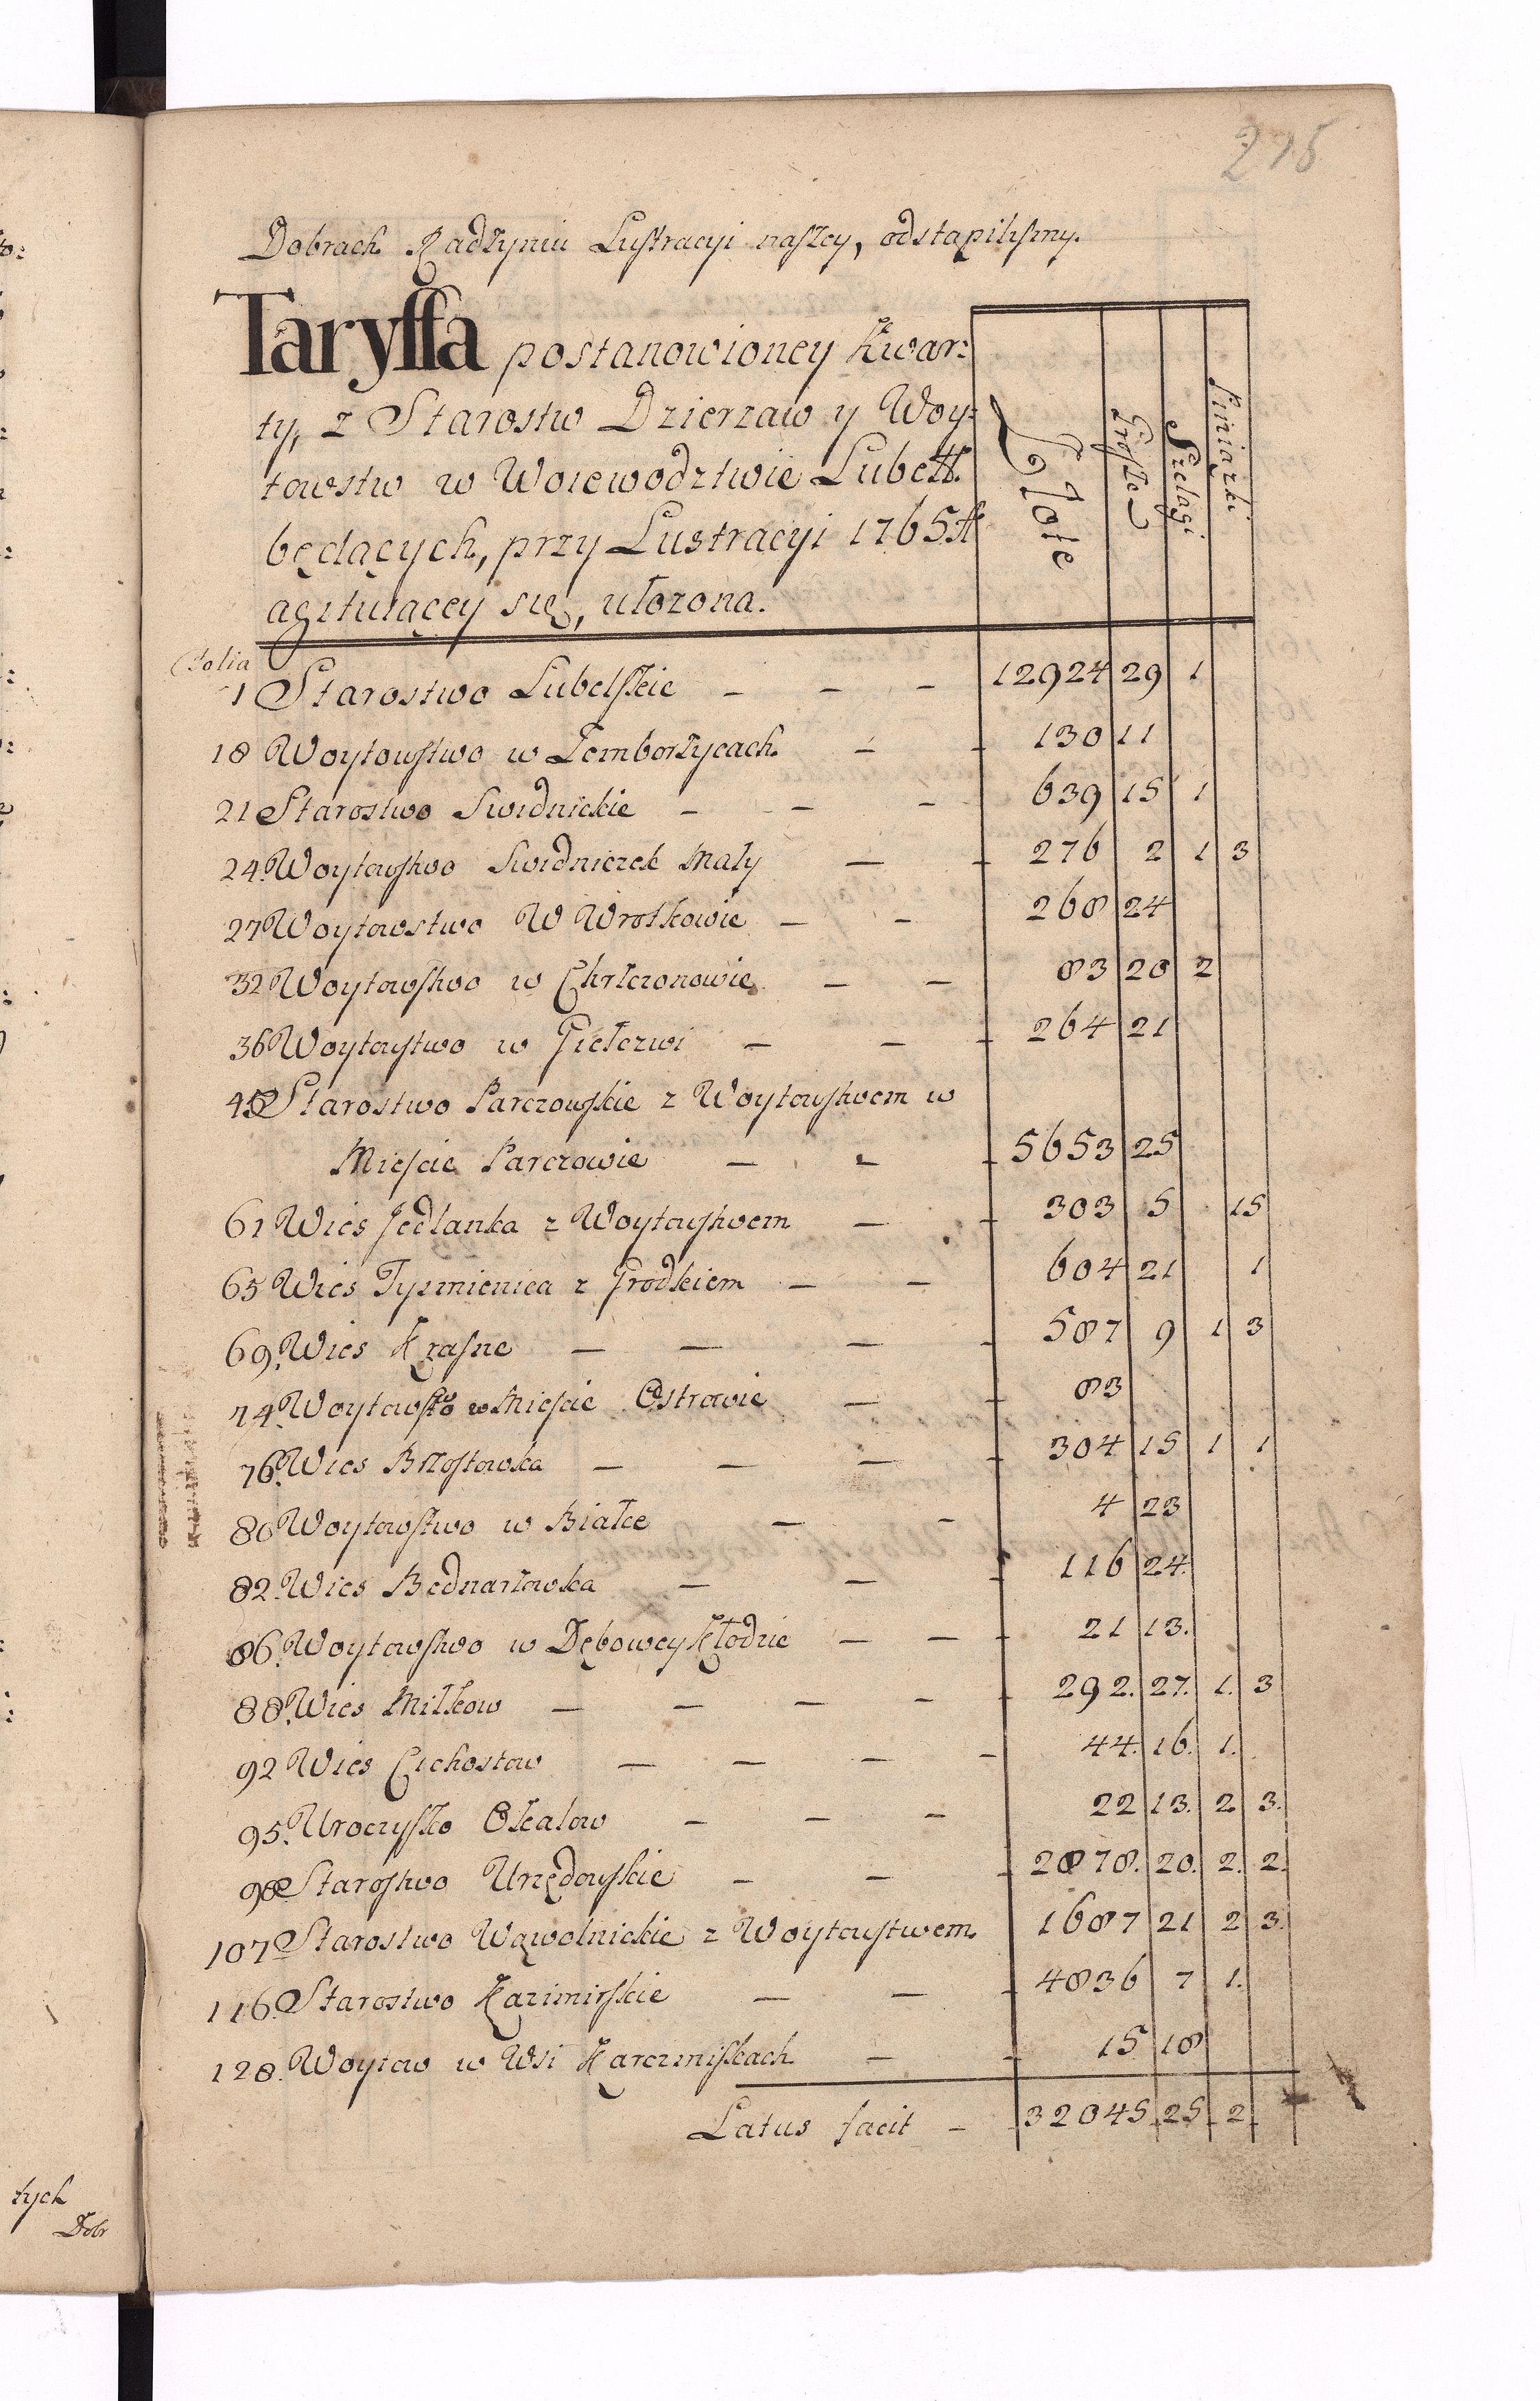 275
Dobrach Radzyniu Lustracyi naszey, odstąpilismy.
Taryffa postanowioney Kwar:
ty, z Starostw Dzierzaw y Woy:
towstw w Woiewodztwie Lubell.
będących, przy Lustracyi 1765.
agituiącey się, ułozona.
Złote Grosze Szelągi Piniązki
Folia
1 Starostwo Lubelskie - - - 12924 29 1
18 Woytowstwo w Zemborzycach - - 130 11
21 Starostwo Swidnickie - - - 639 15 1
24. Woytowstwo Swidniczek Mały - - 276 2 1 3
27 Woytowstwo W Wrotkowie - - 268 24
32 Woytowstwo w Chrzczonowie - - 83 20 2
36 Woytowstwo w Giełczwi - - - 264 21
45 Starostwo Parczowskie z Woytowstwem w
Mieście Parczowie - - - 5653 25
61 Wies Jedlanka z Woytowstwem - - 303 5 15
65 Wies Tyzmienica z Grodkiem - - 604 21 1
69. Wies Krasne - - - - 587 9 1 3
74. Woytowstwo w Mieście Ostrowie - - 83
76. Wies Brzostowka - - - - 304 15 1 1
80 Woytowstwo w Białce - - 4 23
82. Wies Bednarzowka - - - 116 24.
86. Woytowstwo w Dębowey Kłodzie - - - 21 13.
88. Wies Miłkow - - - - - 292. 27. 1. 3
92 Wies Cichostow - - - - 44. 16. 1.
95. Uroczysko Okalow - - - 22 13. 2 3.
98 Starostwo Urzędowskie - - - 2878. 20. 2. 2.
107 Starostwo Wąwolnickie z Woytowstwem 1687 21 2 3.
116. Starostwo Kazimirskie - - - 4836 7 1.
128. Woytow w Wsi Karczmiskach - - 15 18
Latus facit - 32045 25 2
tych
Dobr